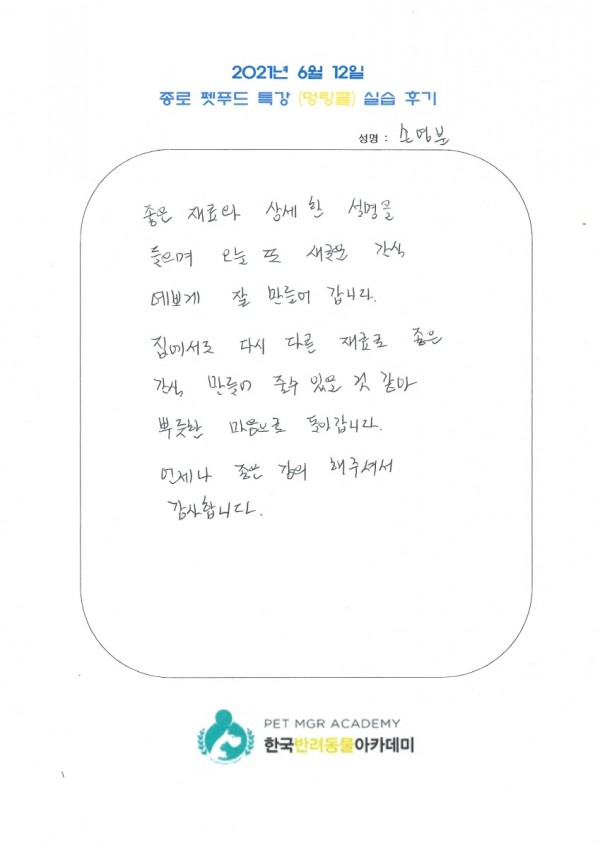 2021년 6월 12일
종로 펫푸드 특강 (멍링클) 실습 후기
성명 : 손영분
좋은 재료와 상세한 설명을
들으며 오늘 또 새로운 간식
예쁘게 잘 만들어 갑니다.
집에서도 다시 다른 재료로 좋은
간식 만들어 줄수 있을 것 같아
뿌듯한 마음으로 돌아갑니다.
언제나 좋은 강의 해주셔서
감사합니다.
PET MGR ACADEMY
한국반려동물아카데미